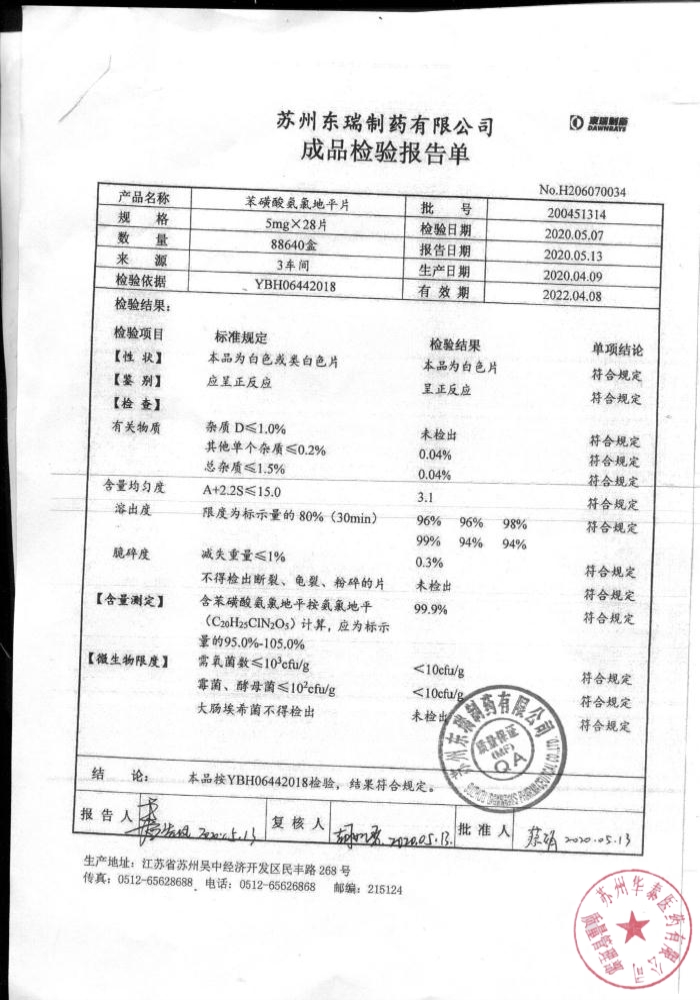 苏州东瑞制药有限公司
東瑞製藥
DAWNRAYS
成品检验报告单
No.H206070034
产品名称 苯磺酸氨氯地平片 批 号 200451314
规 格 5mg×28片 检验日期 2020.05.07
数 量 88640盒 报告日期 2020.05.13
来 源 3车间 生产日期 2020.04.09
检验依据 YBH06442018 有 效 期 2022.04.08
检验结果：
检验项目 标准规定 检验结果 单项结论
【性 状】 本品为白色或类白色片 本品为白色片 符合规定
【鉴 别】 应呈正反应 呈正反应 符合规定
【检 查】
有关物质 杂质 D≤1.0% 未检出 符合规定
其他单个杂质≤0.2% 0.04% 符合规定
总杂质≤1.5% 0.04% 符合规定
含量均匀度 A+2.2S≤15.0 3.1 符合规定
溶出度 限度为标示量的 80%（30min） 96% 96% 98% 符合规定
99% 94% 94%
脆碎度 减失重量≤1% 0.3% 符合规定
不得检出断裂、龟裂、粉碎的片 未检出 符合规定
【含量测定】 含苯磺酸氨氯地平按氨氯地平 99.9% 符合规定
（C20H25ClN2O5）计算，应为标示
量的95.0%-105.0%
【微生物限度】 需氧菌数≤10³cfu/g <10cfu/g 符合规定
霉菌、酵母菌≤10²cfu/g <10cfu/g 符合规定
大肠埃希菌不得检出 未检出 符合规定
苏州东瑞制药有限公司
质量保证
(MF)
QA
结 论： 本品按YBH06442018检验，结果符合规定。
报 告 人 2020.5.13 复 核 人 2020.05.13. 批 准 人 2020.05.13
生产地址：江苏省苏州吴中经济开发区民丰路 268 号
传真：0512-65628688 、电话：0512-65626868 邮编：215124
苏州华泰医药有限公司
质量管理部